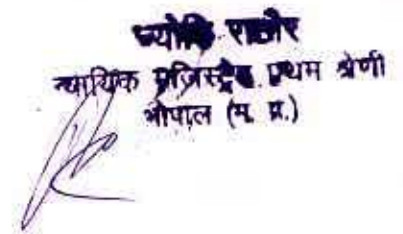 ज्योति राठौर
न्यायिक मजिस्ट्रेट प्रथम श्रेणी
भोपाल (म. प्र.)